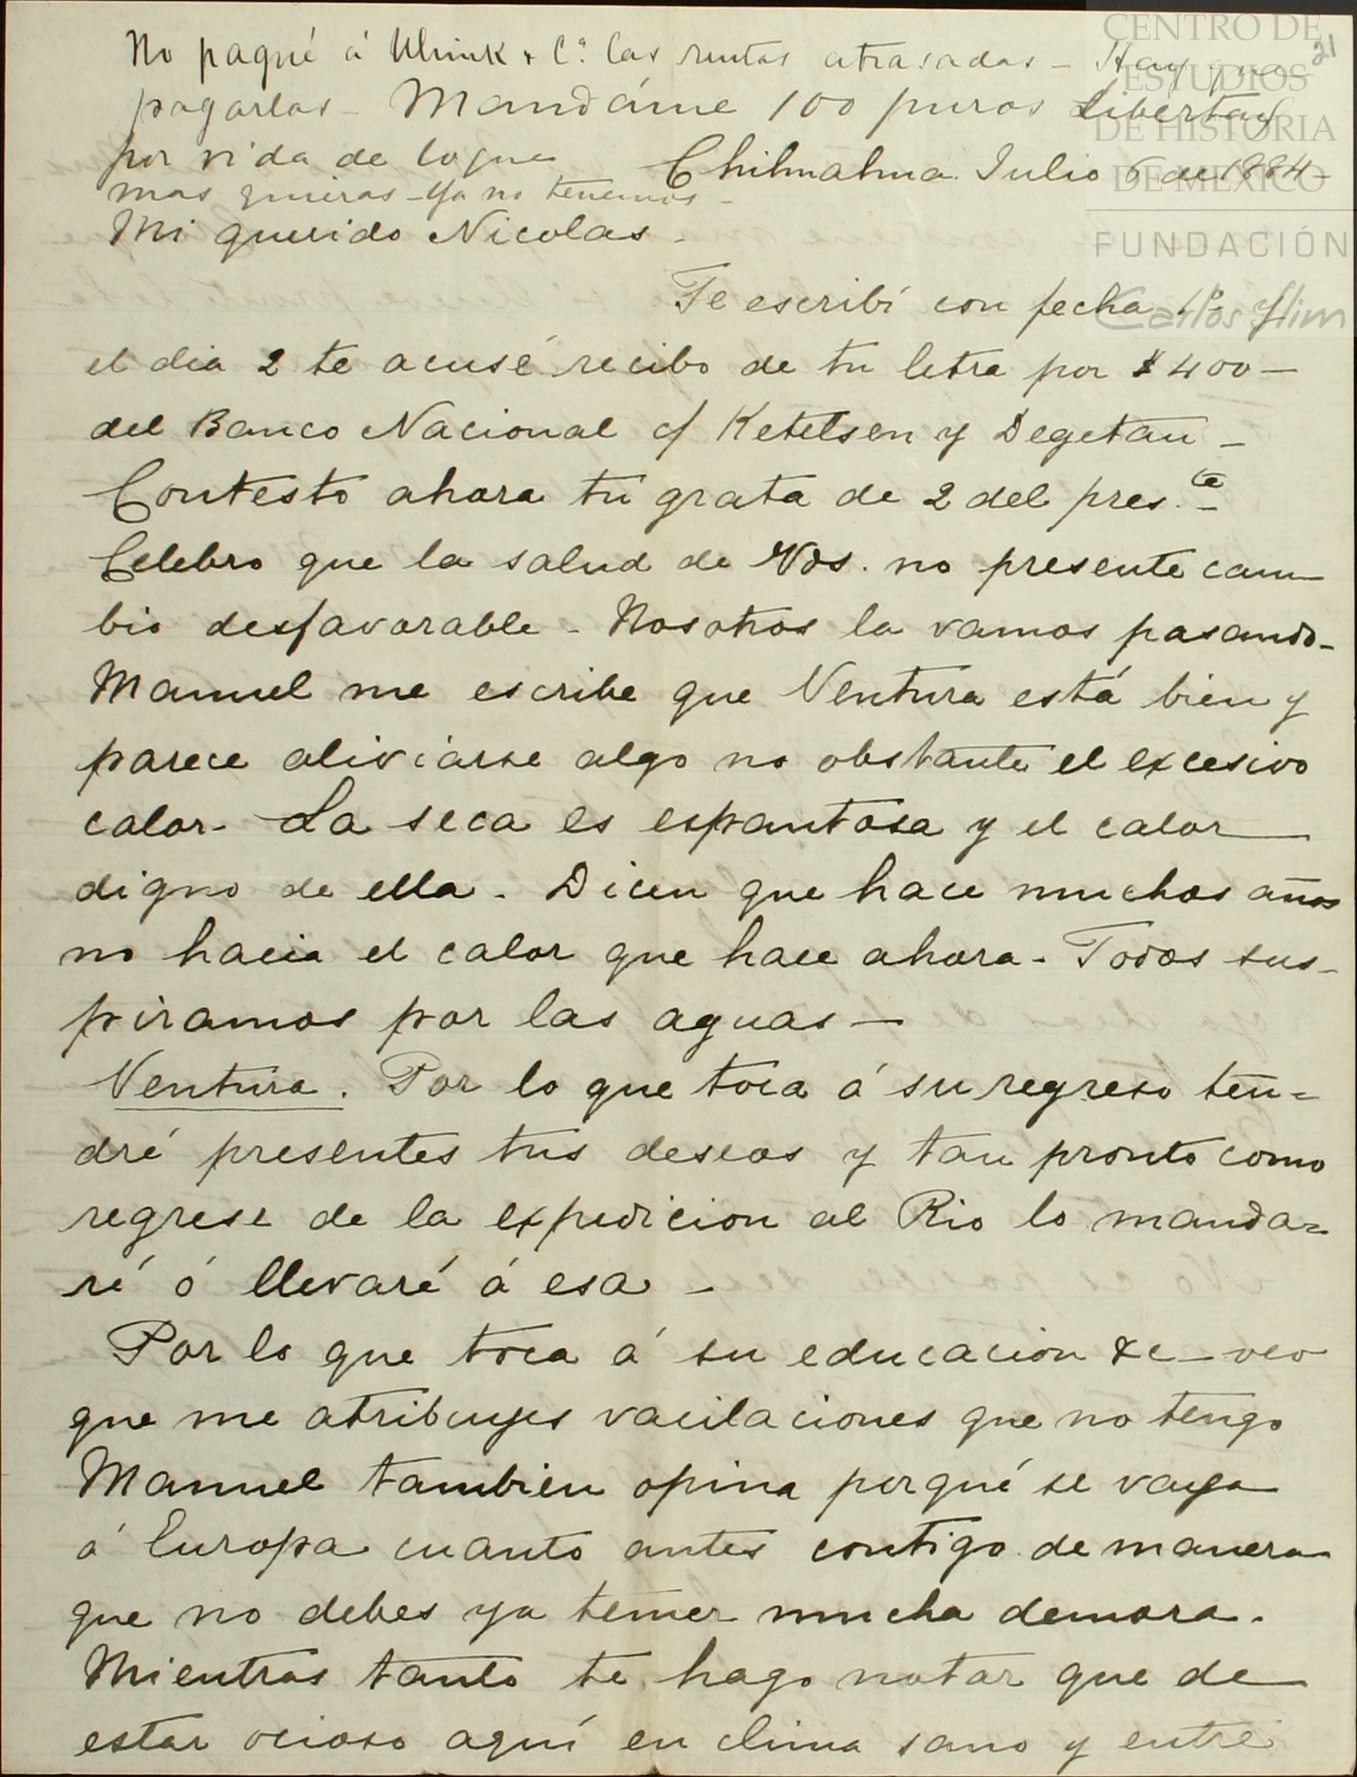 CENTRO DE
ESTUDIOS
DE HISTORIA
DE MÉXICO
FUNDACIÓN
Carlos Slim
21
No pagué á & Cª. las rentas atrasadas - Hay que
pagarlas - Mandáme 100 puros Libertad
por vida de loque
mas quieras - Ya no tenemos -
Chihuahua Julio 6 de 1884 -
Mi querido Nicolas -
Te escribí con fecha 1º y
el dia 2 te acusé recibo de tu letra por $400 -
del Banco Nacional c/ Ketelsen y Degetau -
Contesto ahora tu grata de 2 del pres.te -
Celebro que la salud de Vds. no presente cam
bio desfavorable - Nosotros la vamos pasando -
Manuel me escribe que Ventura está bien y
parece aliviarse algo no obstante el excesivo
calor - La seca es espantosa y el calor
digno de ella - Dicen que hace muchos años
no hacia el calor que hace ahora - Todos sus-
piramos por las aguas -
Ventura. Por lo que toca á su regreso ten=
dré presentes tus deseos y tan pronto como
regrese de la expedicion al Rio lo manda=
ré ó llevaré á esa -
Por lo que toca á su educacion &c - veo
que me atribuyes vacilaciones que no tengo
Manuel tambien opina porqué se vaya
á Europa cuanto antes contigo de manera
que no debes ya temer mucha demora.
Mientras tanto te hago notar que de
estar ocioso aquí en clima sano y entre